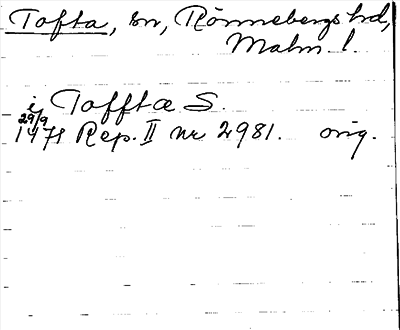 Tofta, sn, Rönnebergs hd,
Malm. l.
i Tofftæ S.
29/9
1471 Rep. II nr 2981. orig.